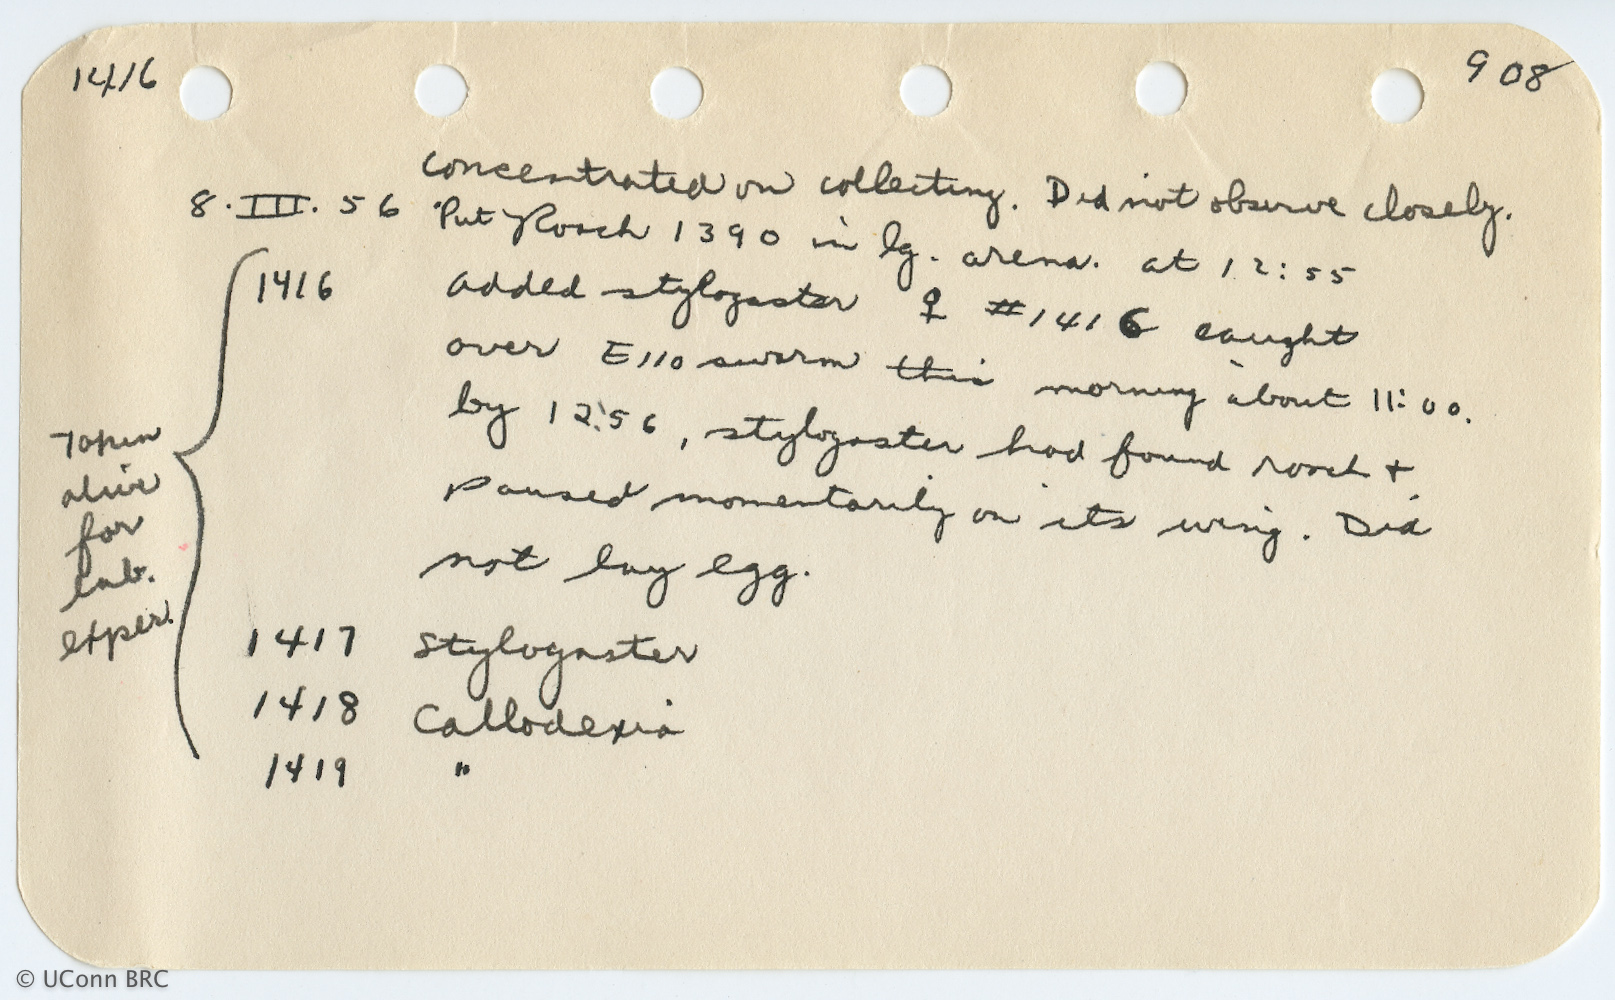 1416 908
concentrated on collecting. Did not observe closely.
8.III.56 Put Roach 1390 in lg. arena. at 12:55
1416 added stylogaster ♀ #1416 caught
over E110 swarm this morning about 11:00.
by 12:56, stylogaster had found roach +
paused momentarily on its wing. Did
not lay egg.
Taken
alive
for
lab.
exper.
1417 Stylogaster
1418 Callodexia
1419 "
© UConn BRC